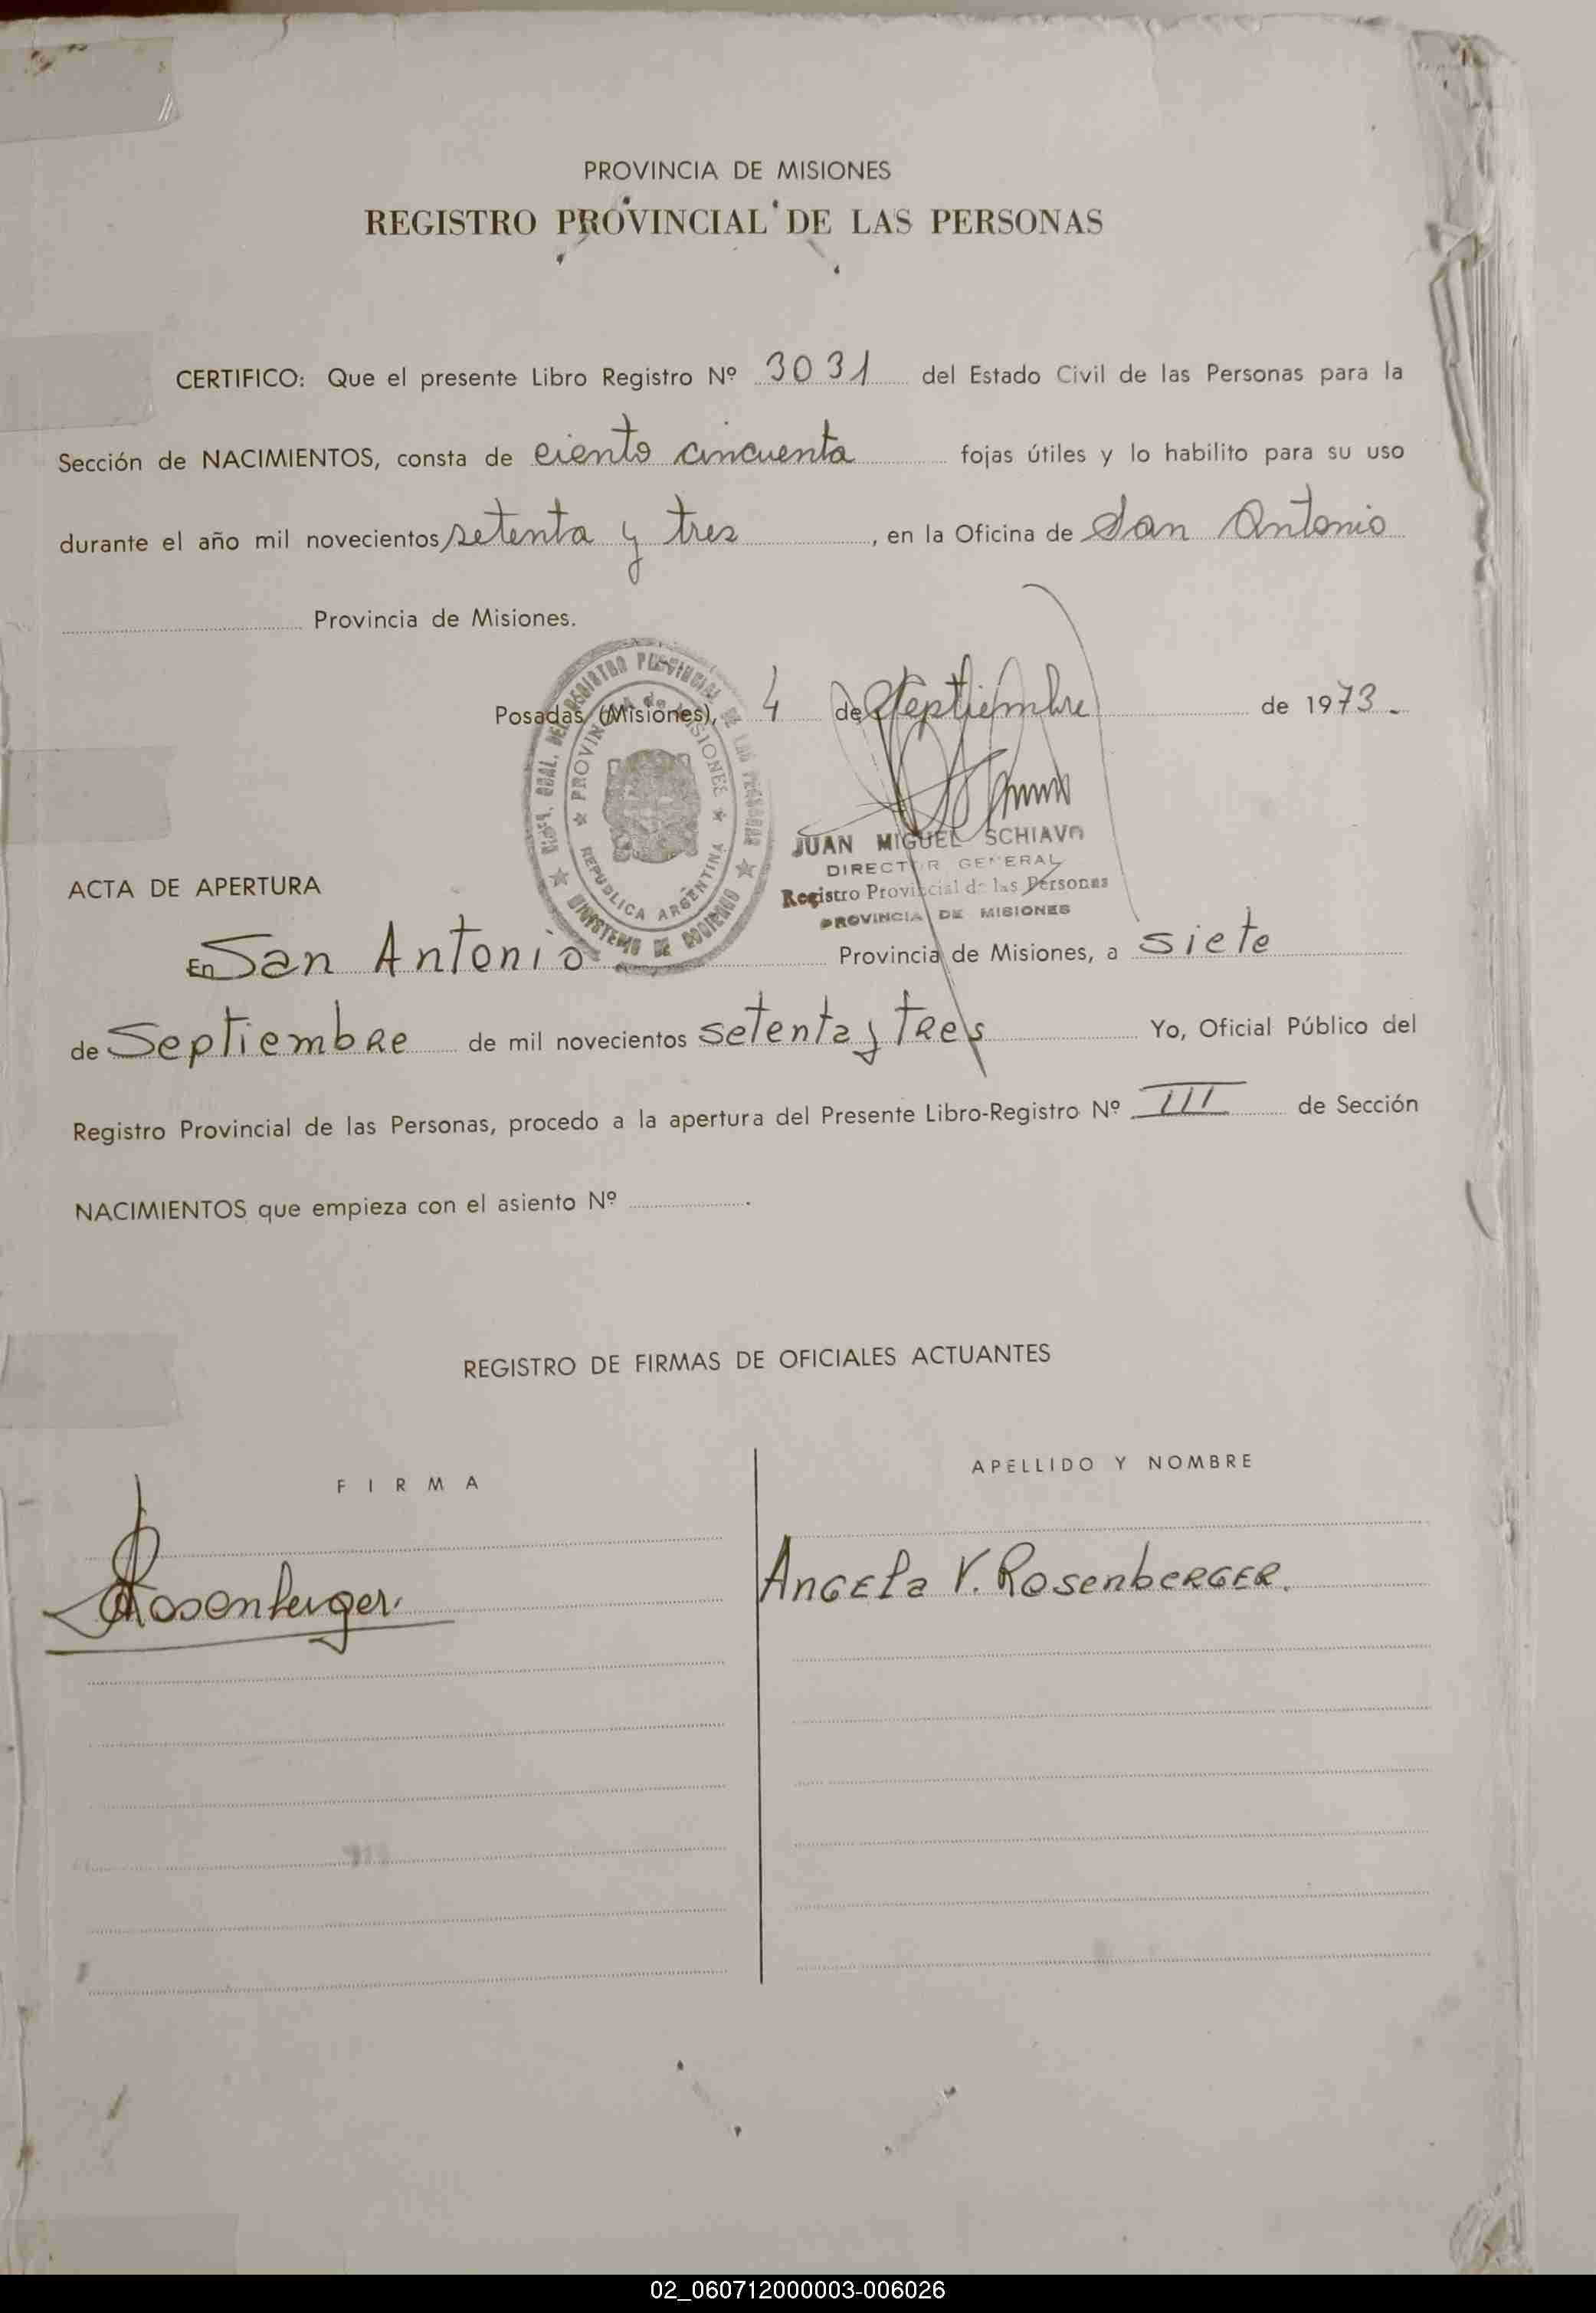 PROVINCIA DE MISIONES
REGISTRO PROVINCIAL DE LAS PERSONAS
CERTIFICO: Que el presente Libro Registro Nº 3031 del Estado Civil de las Personas para la
Sección de NACIMIENTOS, consta de ciento cincuenta fojas útiles y lo habilito para su uso
durante el año mil novecientos setenta y tres, en la Oficina de San Antonio
Provincia de Misiones.
Posadas (Misiones), 4 de Septiembre de 1973.
REGISTRO PROVINCIAL DE LAS PERSONAS
MINISTERIO DE GOBIERNO
PROVINCIA de MISIONES
REPUBLICA ARGENTINA
JUAN MIGUEL SCHIAVO
DIRECTOR GENERAL
Registro Provincial de las Personas
PROVINCIA DE MISIONES
ACTA DE APERTURA
En San Antonio Provincia de Misiones, a siete
de Septiembre de mil novecientos setenta y tres Yo, Oficial Público del
Registro Provincial de las Personas, procedo a la apertura del Presente Libro-Registro Nº III de Sección
NACIMIENTOS que empieza con el asiento Nº .
REGISTRO DE FIRMAS DE OFICIALES ACTUANTES
FIRMA
APELLIDO Y NOMBRE
Rosenberger.
Angela V. Rosenberger.
02_060712000003-006026